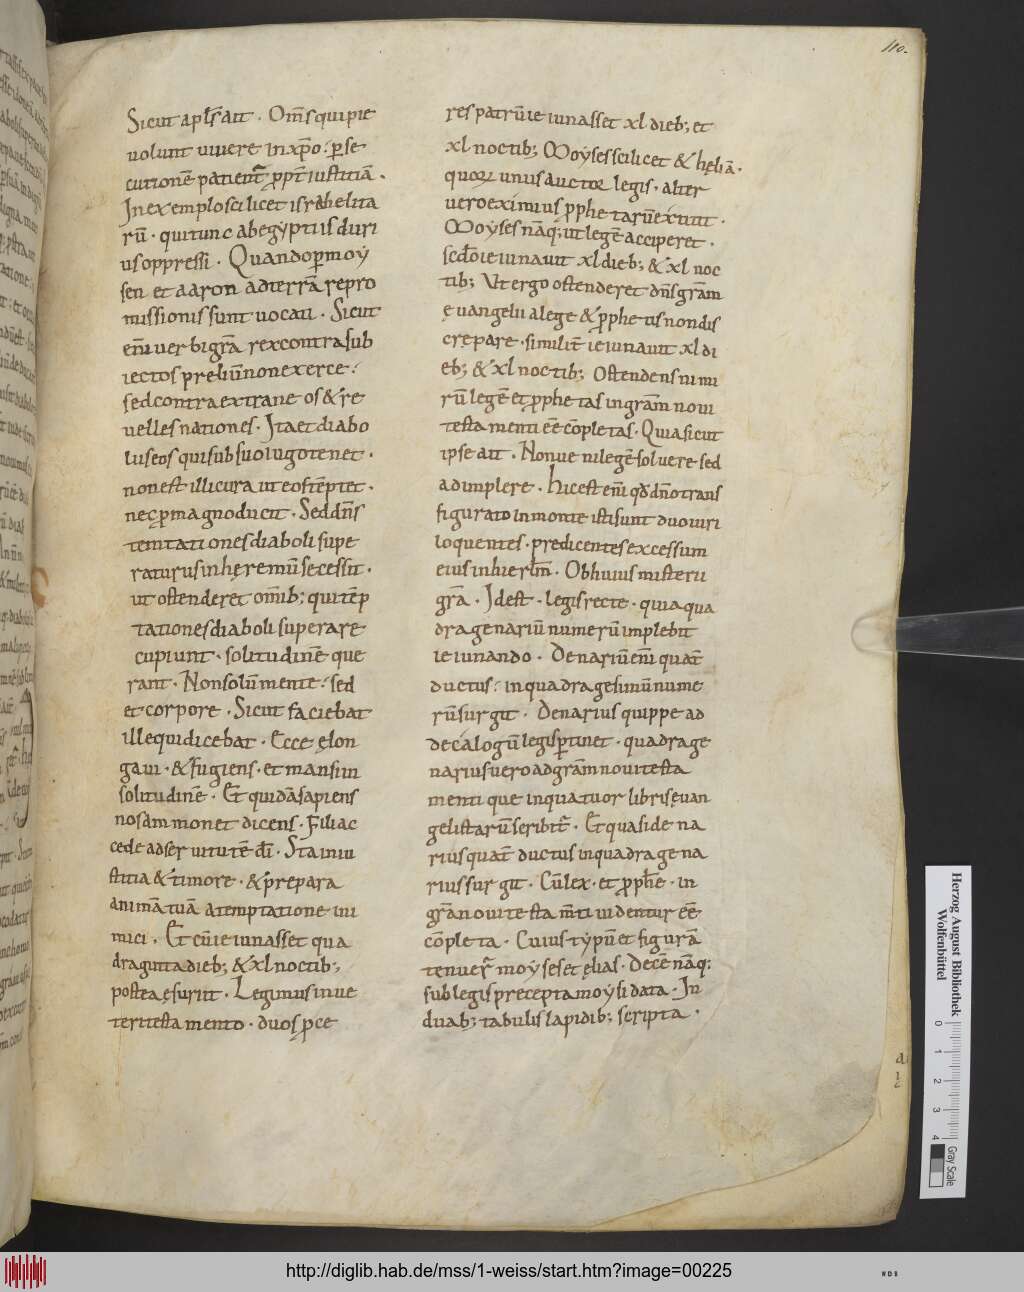 110.
Sicut apl̄s ait · Om̄s qui pie
volunt vivere in xp̄o · p̱se
cutionē patient̄ ꝓpt̄ iustitiā ·
In exemplo scilicet israhelita
rū · qui tunc ab egyptiis duri
us oppressi · Quando p̱ moẏ
sen et aaron ad terrā repro
missionis sunt vocati · Sicut
enī verbi gr̄a rex contra sub
iectos preliū non exerce :
sed contra extraneos & re
velles nationes · Ita et diabo
lus eos qui sub suo iugo tenet ·
non est illi cura ut eos tēptet ·
nec p̱ magno ducit · Sed dn̄s
temtationes diaboli supe
raturus in hęremū secessit ·
ut ostenderet om̄ib; qui tēp
tationes diaboli superare
cupiunt · solitudinē que
rant · Non solū mente : sed
et corpore · Sicut faciebat
ille qui dicebat · Ecce ęlon
gavi · & fugiens · et mansi in
solitudinē · Et quidā sapiens
nos ammonet dicens · Fili ac
cede ad servitutē dī · Sta in iu
stitia & timore · & prepara
animā tuā a temptatione ini
mici · Et cū ieiunasset qua
draginta dieb; & xl noctib;
postea esuriit · Legimus in ve
teri testamento · duos p̱ ce
res patrū ieiunasset xl dieb; et
xl noctib; Moẏses scilicet & hęliā ·
quoꝝ unus auctor legis · alter
vero eximius ꝓphetarū extitit ·
Moẏses nāq; ut legē acciperet ·
scdō ieiunavit xl dieb; & xl noc
tib; Ut ergo ostenderet dn̄s gr̄am
ęvangelii a lege & ꝓphetis non dis
crepare · similit̄ ieiunavit xl di
eb; & xl noctib; Ostendens nimi
rū legē et ꝓphetas in gr̄am novi
testamenti eē cōpletas · Quia sicut
ipse ait · Non veni legē solvere sed
adimplere · Hic est enī qđ dn̄o trans
figurato in monte isti sunt duo viri
loquentes · predicentes excessum
eius in hierl̄m · Obhuius misterii
gr̄a · Id est · legis recte · quia qua
dragenariū numerū implebit
ieiunando · Denariū enī quat̄
ductus : in quadragesimū nume
rū surgit · Denarius quippe ad
decalogū legis p̱tinet · quadrage
narius vero ad gr̄am novi testa
menti que in quatuor libris ęvan
gelistarū scribit̄ · Et quaside na
rius quat̄ ductus in quadragena
rius surgit · Cū lex · et ꝓphē · in
gr̄a novi testam̄ti videntur eē
cōpleta · Cuius tẏpū et figurā
tenuer̄ moẏses et ęlias · Decē nāq;
sub legis precepta moẏsi data · In
duab; tabulis lapidib; scripta ·
Herzog August Bibliothek
Wolfenbüttel
0 1 2 3 4
Gray Scale
http://diglib.hab.de/mss/1-weiss/start.htm?image=00225